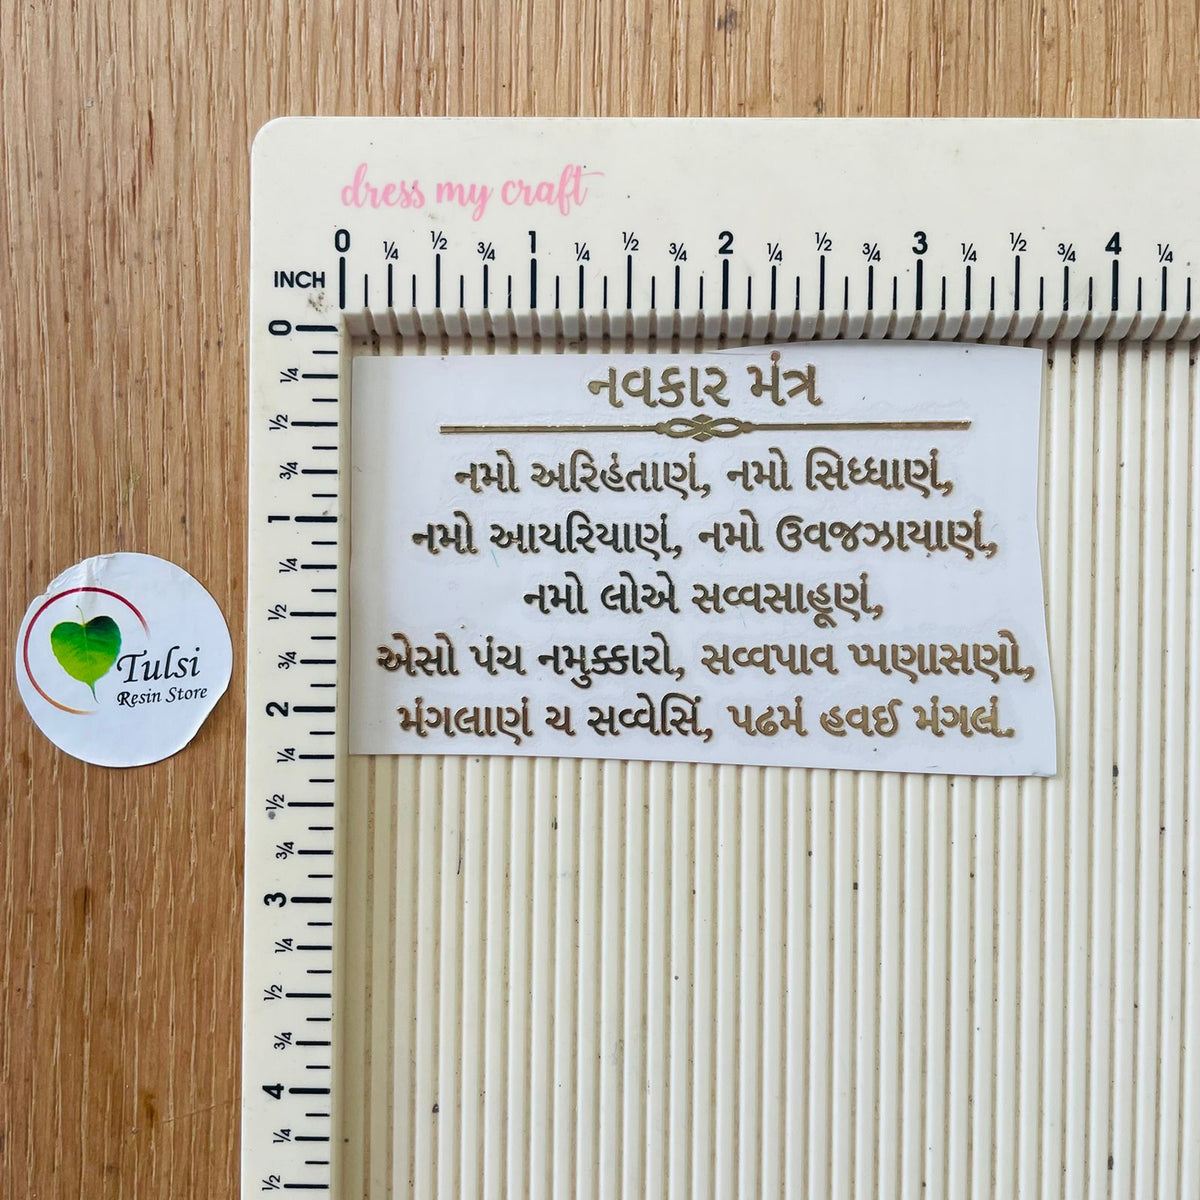 dress my craft
0 ¼ ½ ¾ 1 ¼ ½ ¾ 2 ¼ ½ ¾ 3 ¼ ½ ¾ 4 ¼
INCH
0
¼
½
¾
1
¼
½
¾
2
¼
½
¾
3
¼
½
¾
4
¼
½
નવકાર મંત્ર
નમો અરિહંતાણં, નમો સિધ્ધાણં,
નમો આયરિયાણં, નમો ઉવજઝાયાણં,
નમો લોએ સવ્વસાહૂણં,
એસો પંચ નમુક્કારો, સવ્વપાવ પ્પણાસણો,
મંગલાણં ચ સવ્વેસિં, પઢમં હવઈ મંગલં.
Tulsi
Resin Store